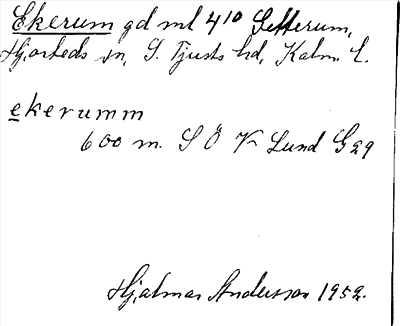 Ekerum gd ml 4/10 Setterum,
Hjorteds sn, S. Tjusts hd, Kalm. l.
ekerumm
600 m. S Ö K Lund G 29
Hjalmar Andersson 1952.